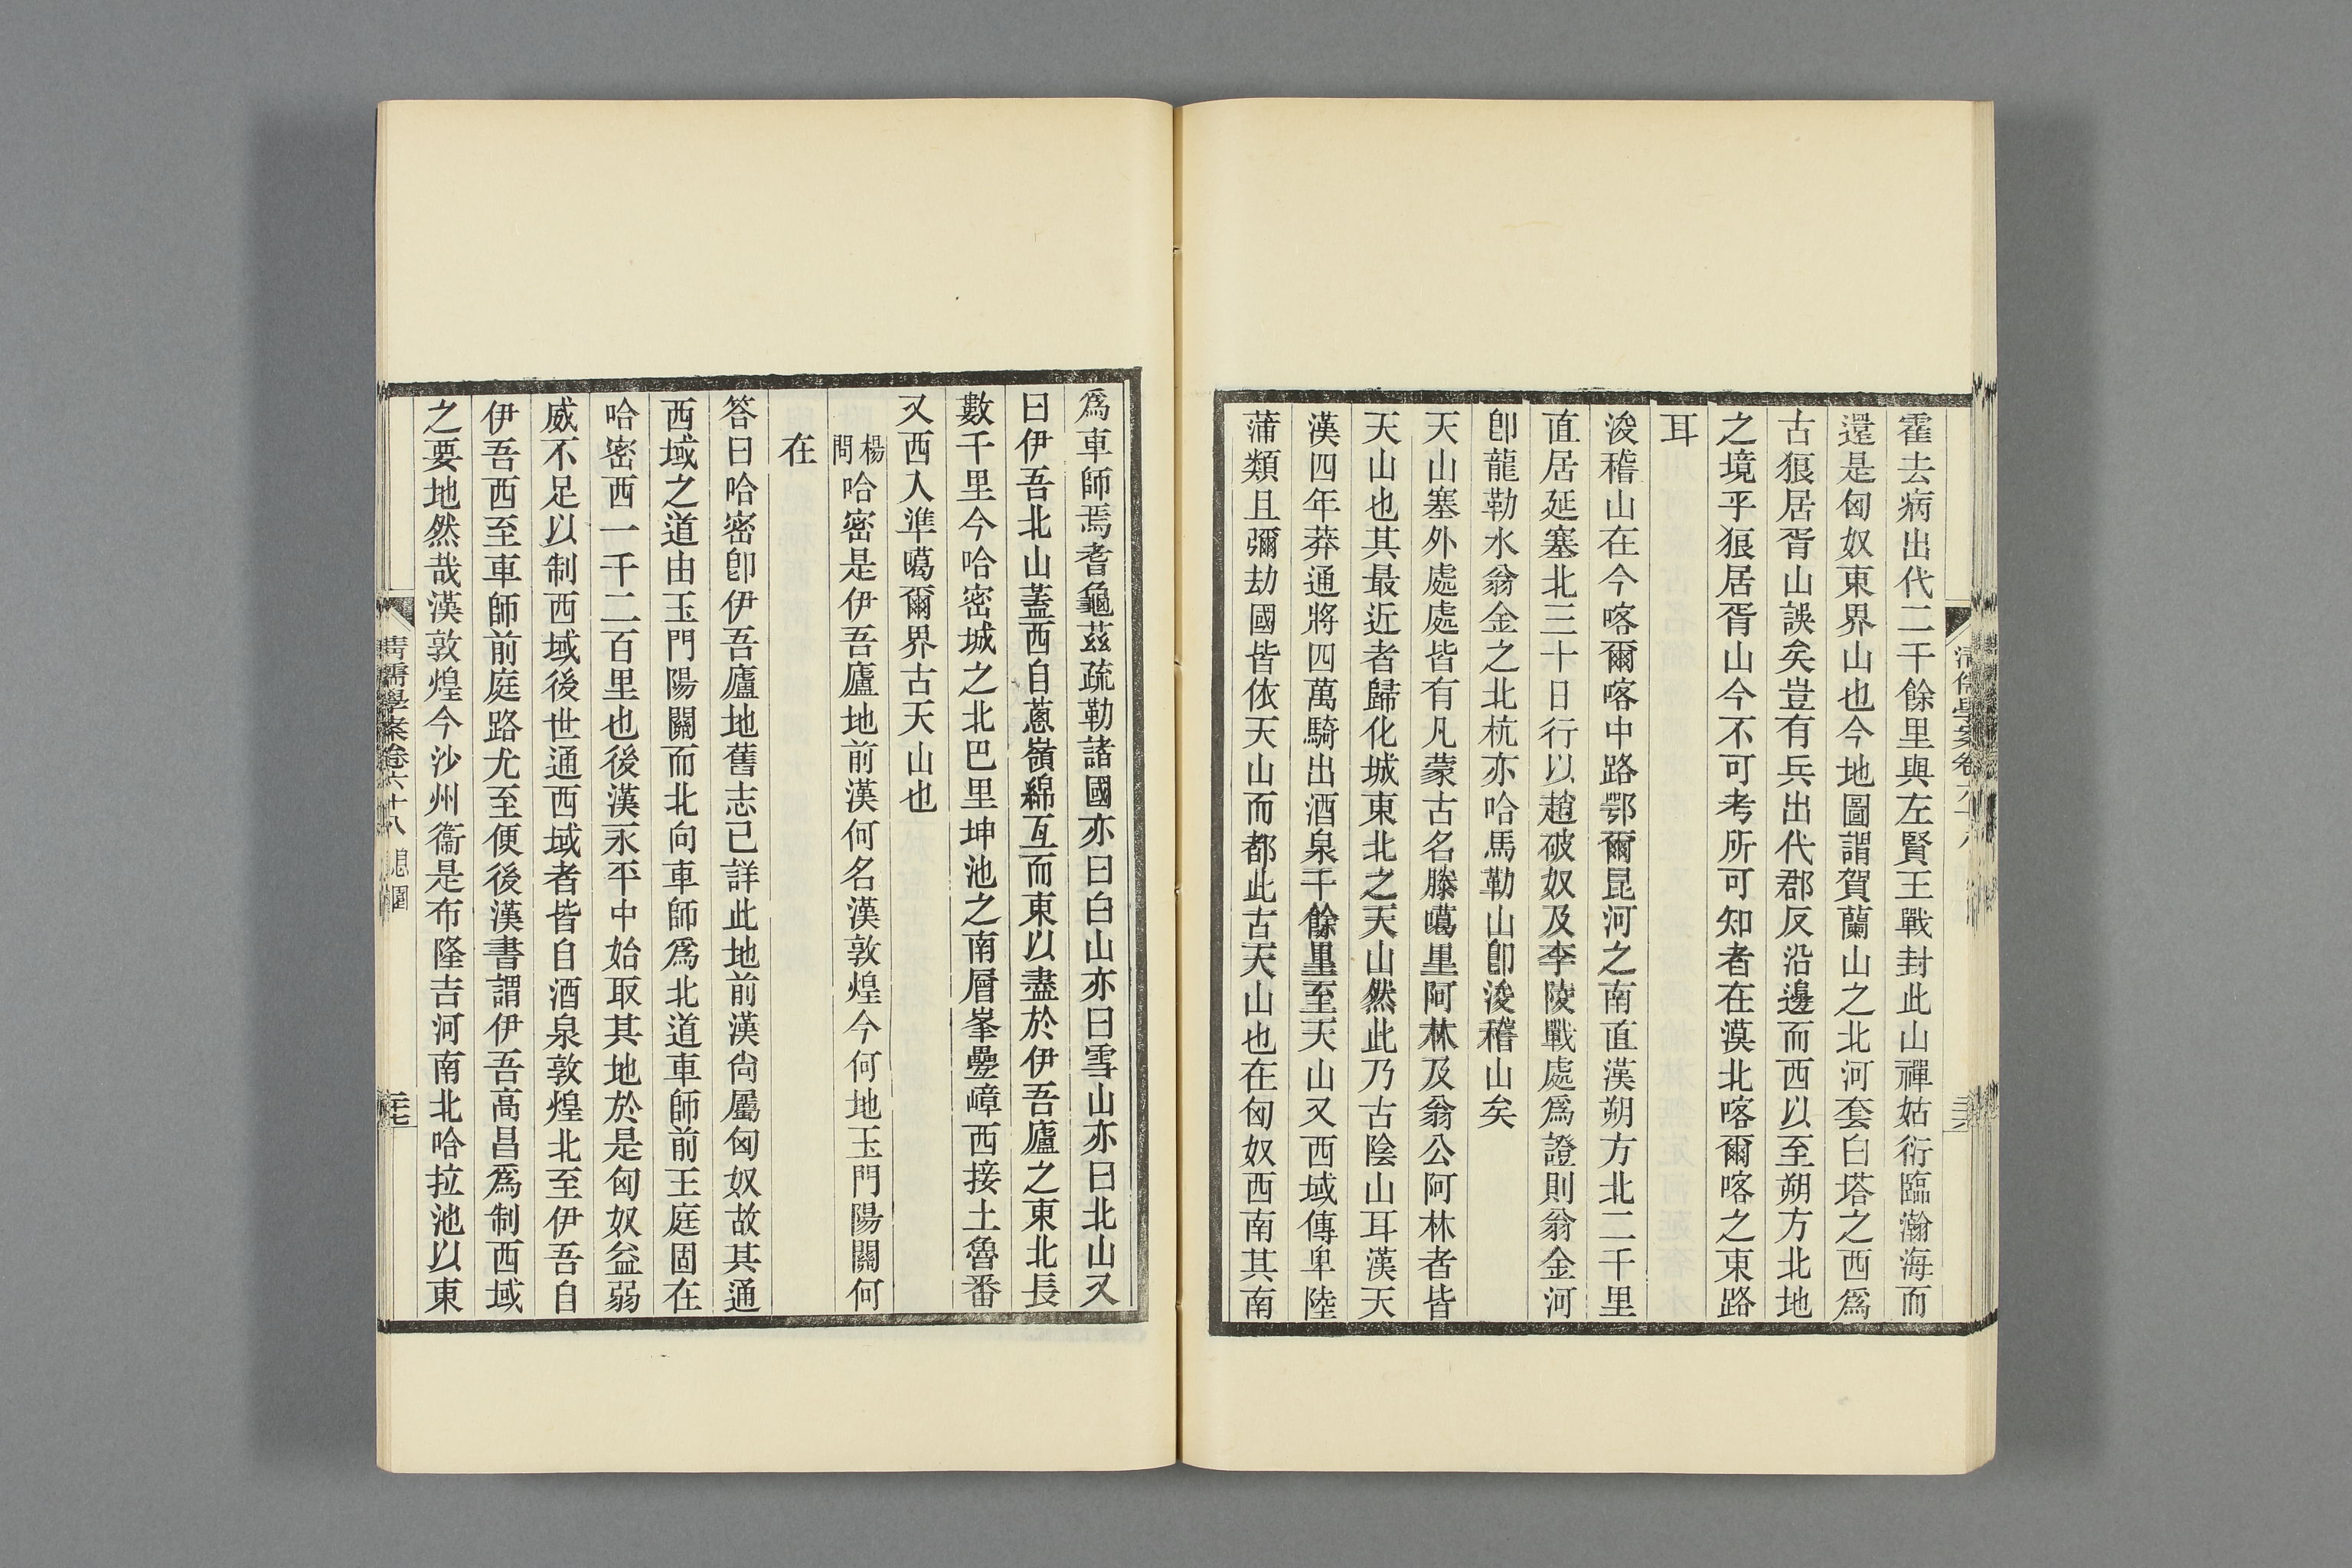 霍去病出代二千餘里與左賢王戰封此山禪姑衍臨瀚海而
還是匈奴東界山也今地圖謂賀蘭山之北河套白塔之西爲
古狼居胥山誤矣豈有兵出代郡反沿邊而西以至朔方北地
之境乎狼居胥山今不可考所可知者在漠北喀爾喀之東路
耳
浚稽山在今喀爾喀中路鄂爾昆河之南直漢朔方北二千里
直居延塞北三十日行以趙破奴及李陵戰處爲證則翁金河
卽龍勒水翁金之北杭亦哈馬勒山卽浚稽山矣
天山塞外處處皆有凡蒙古名滕噶里阿林及翁公阿林者皆
天山也其最近者歸化城東北之天山然此乃古陰山耳漢天
漢四年莽通將四萬騎出酒泉千餘里至天山又西域傳卑陸
蒲類且彌劫國皆依天山而都此古天山也在匈奴西南其南
爲車師焉耆龜茲疏勒諸國亦曰白山亦曰雪山亦曰北山又
曰伊吾北山蓋西自蔥嶺綿亙而東以盡於伊吾廬之東北長
數千里今哈密城之北巴里坤池之南層峯疊嶂西接土魯番
又西入準噶爾界古天山也
楊問哈密是伊吾廬地前漢何名漢敦煌今何地玉門陽關何
在
答曰哈密卽伊吾廬地舊志已詳此地前漢尙屬匈奴故其通
西域之道由玉門陽關而北向車師爲北道車師前王庭固在
哈密西一千二百里也後漢永平中始取其地於是匈奴益弱
威不足以制西域後世通西域者皆自酒泉敦煌北至伊吾自
伊吾西至車師前庭路尤至便後漢書謂伊吾高昌爲制西域
之要地然哉漢敦煌今沙州衞是布隆吉河南北哈拉池以東
清儒學案卷六十八 息園